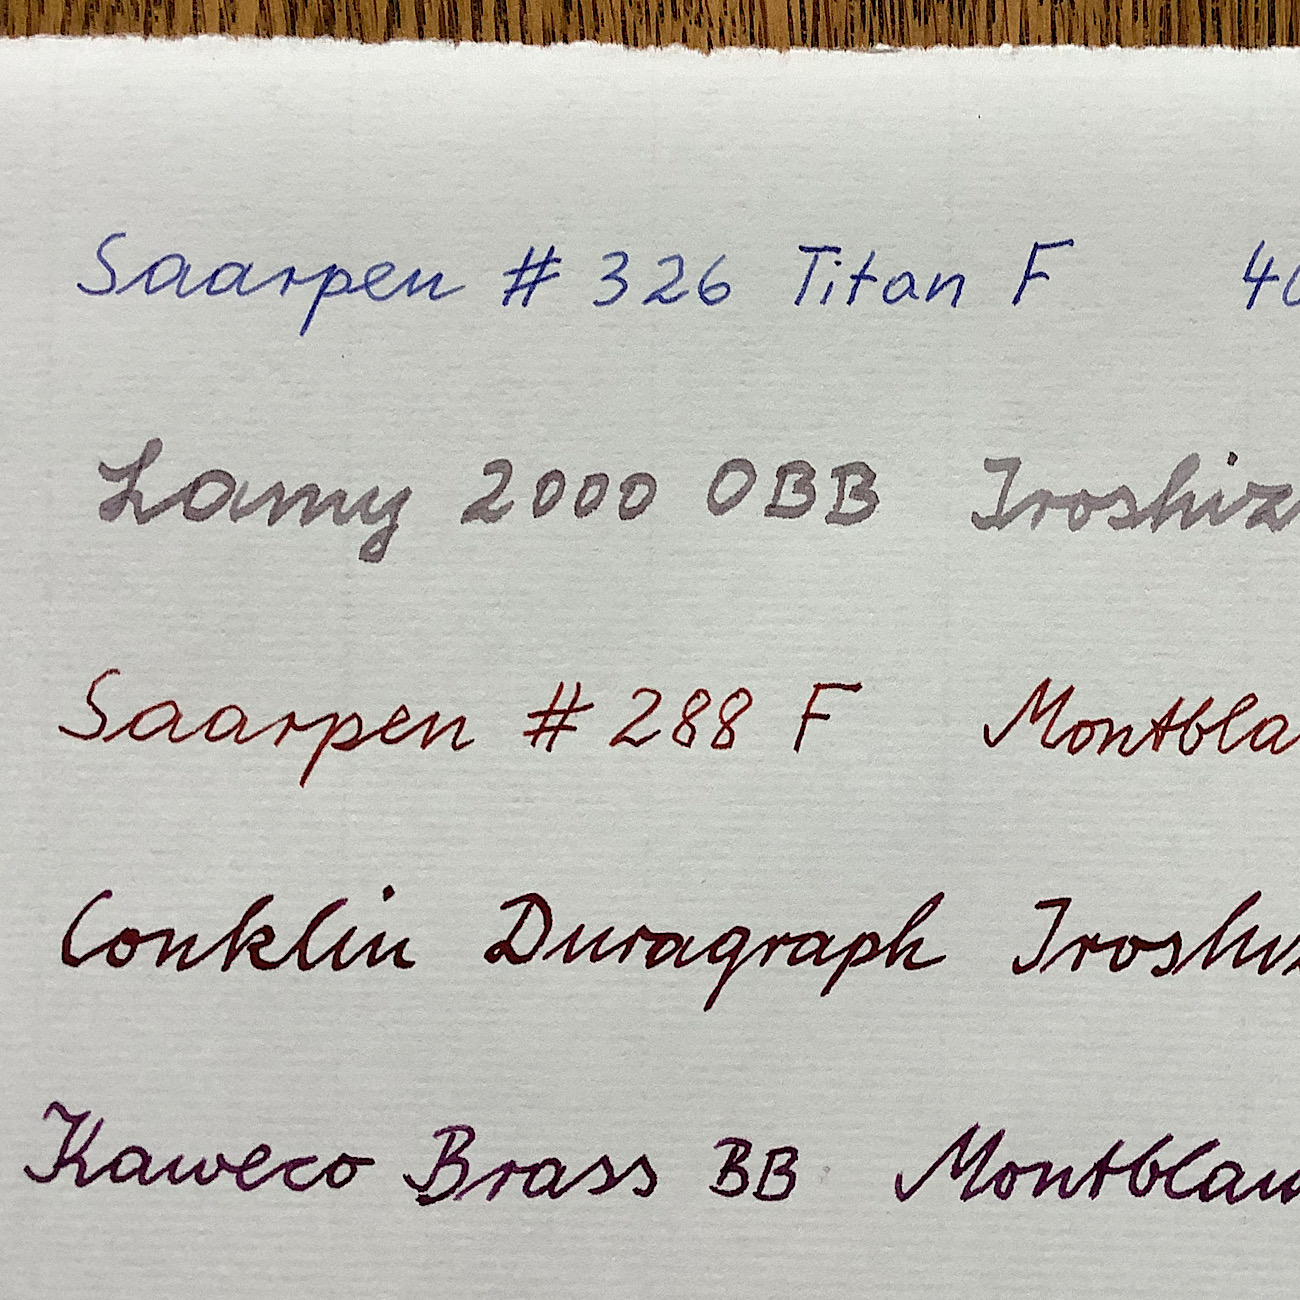 Saarpen # 326 Titan F 40
Lamy 2000 OBB Iroshiz
Saarpen # 288 F Montbla
Conklin Duragraph Iroshiz
Kaweco Brass BB Montblan